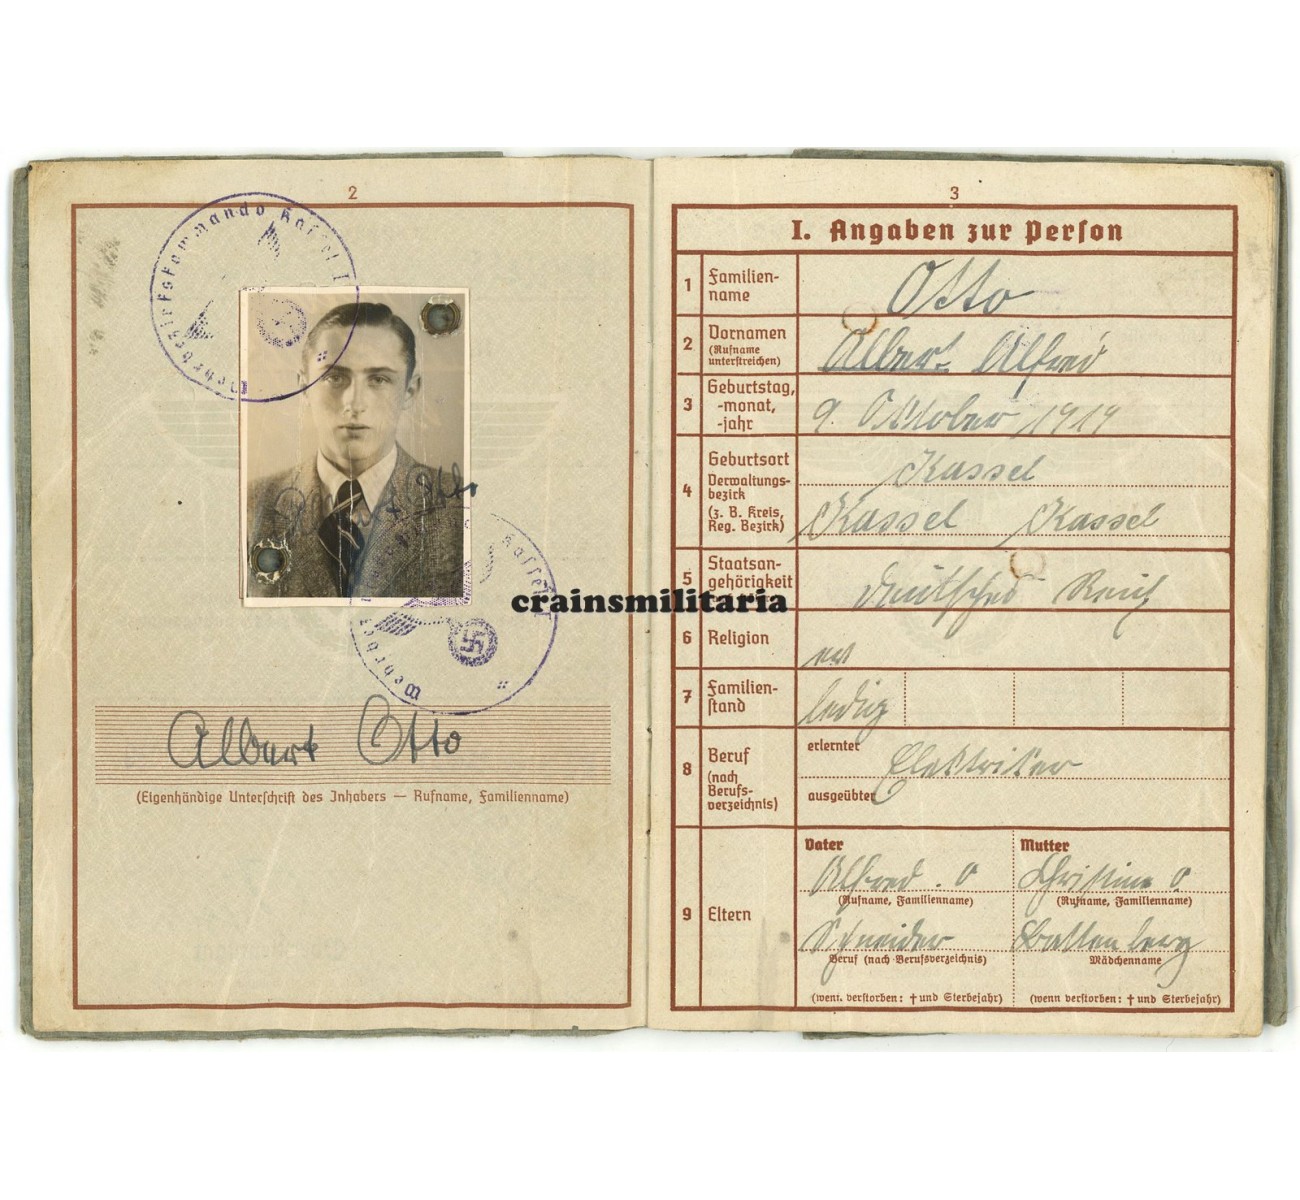 2
Wehrbezirkskommando Kassel I
Albert Otto
Wehrbezirkskommando Kassel I
Albert Otto
(Eigenhändige Unterschrift des Inhabers — Rufname, Familienname)
3
I. Angaben zur Person
1 Familien-
name
Otto
2 Vornamen
(Rufname
unterstreichen)
Albert Alfred
3 Geburtstag,
-monat,
-jahr
9. Oktober 1919
4 Geburtsort
Verwaltungs-
bezirk
(z. B. Kreis,
Reg. Bezirk)
Kassel
Kassel Kassel
5 Staatsan-
gehörigkeit
Deutsches Reich
crainsmilitaria
6 Religion
7 Familien-
stand
ledig
8 Beruf
(nach
Berufs-
verzeichnis)
erlernter
Elektriker
ausgeübter
9 Eltern
Vater
Alfred. O
(Rufname, Familienname)
Schneider
Beruf (nach Berufsverzeichnis)
(wenn verstorben: † und Sterbejahr)
Mutter
Christine O.
(Rufname, Familienname)
Battenberg
Mädchenname
(wenn verstorben: † und Sterbejahr)